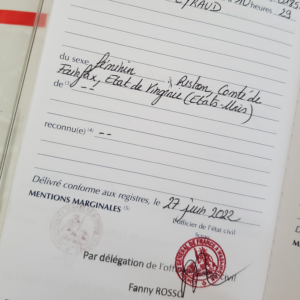 EYRAUD
10 heures, 29
du sexe féminin
à Reston, Comté de
Fairfax, Etat de Virginie (Etats-Unis)
de (3) - -
reconnu(e) (4) - -
Délivré conforme aux registres, le 27 juin 2022
MENTIONS MARGINALES (5)
L'officier de l'état civil
Par délégation de l'off
Fanny ROSSO